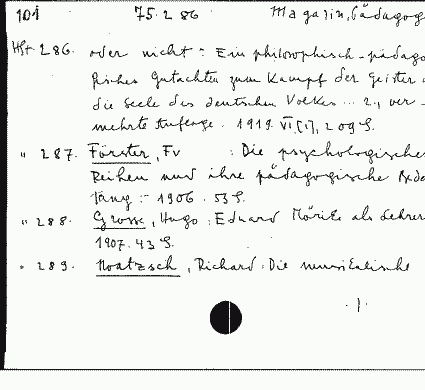 101 75.2 86 Magazin, Pädagog
Hft 286. oder nicht: Ein philosophisch-pädago
gisches Gutachten zum Kampf der Geister
die Seele des deutschen Volkes ... 2., ver-
mehrte Auflage. 1919. VI,[1], 209 S.
" 287. Förster, Fr : Die psychologische
Reihen und ihre pädagogische Bedeu
tung :- 1906. 53 S.
" 288. Grosse, Hugo: Eduard Mörike als Lehrer
1907. 43 S.
" 289. Noatzsch, Richard: Die musikalische